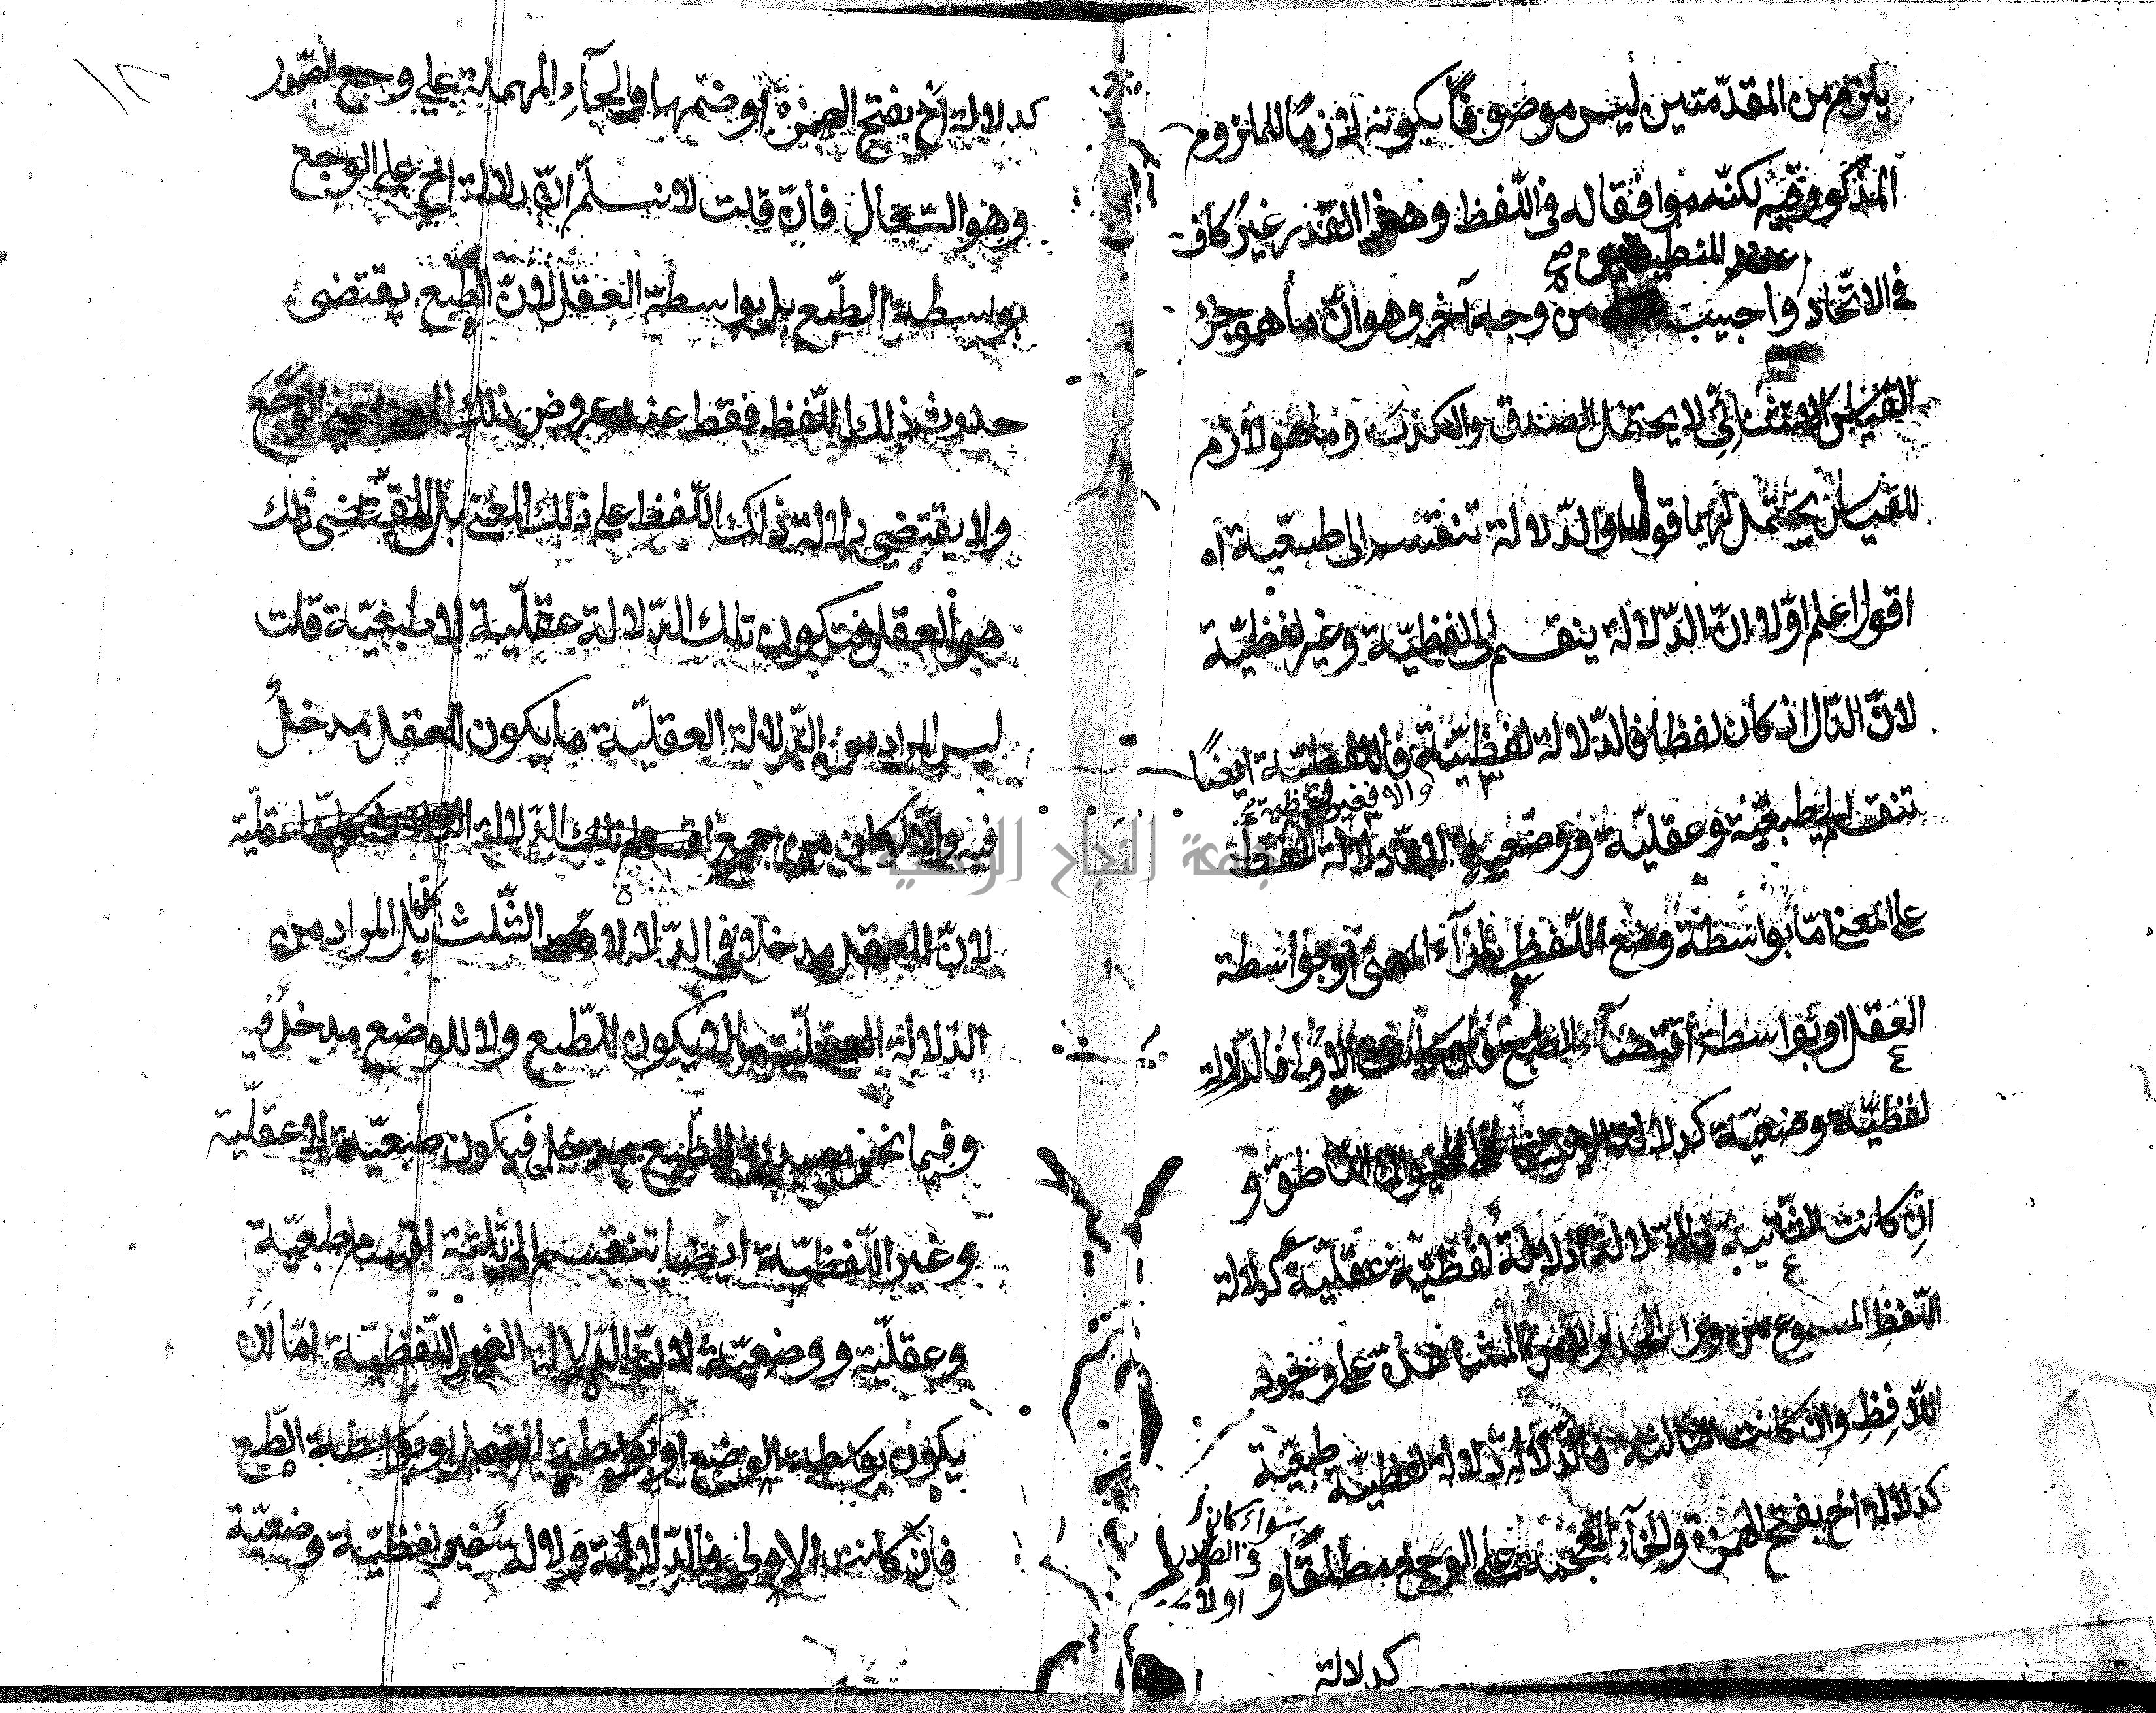 يلزم من المقدّمتين ليس موضوعًا بكونه لازمًا للملزوم
المذكور فيه لكنّه موافقا له في اللّفظ وهذا القدر غير كاف
عند المنطقيين صح
في الاتّحاد واجيب من وجه آخر وهو انّ ما هو جزؤ
القياس الاستثنائي لا يحتمل الصدق والكذب وما هو لازم
للقياس يحتملهما قوله والدّلالة تنقسم الى طبيعيّة اه
اقول اعلم اوّلا انّ الدّلالة ينقسم الى لفظيّة وغير لفظيّة
لانّ الدّال اذ كان لفظا فالدّلالة لفظيّة فاللّفظيّة ايضًا
والا فغير لفظية
تنقسم الى طبعيّة وعقليّة ووضعية لانّ دلالة اللّفظ
على المعنى امّا بواسطة وضع اللّفظ بازآء المعنى او بواسطة
العقل او بواسطة اقتضآء الطبع فان كانت الاولى فالدّلالة
لفظيّة وضعيّة كدلالة الانسان على الحيوان النّاطق و
ان كانت الثّانية فالدّلالة دلالة لفظيّة عقليّة كدلالة
اللّفظ المسموع من ورآء الجدار المشاهدة على وجود
اللّافظ وان كانت الثالثة فالدّلالة دلالة لفظيّة طبعيّة
كدلالة اخ بفتح الهمزة والخآء المعجمة على الوجع مطلقًا و
سواء كان
في الصدر
اولا
كدلالة
١٨
كدلالة اح بفتح الهمزة او ضمّها والحآء المهملة على وجع الصّدر
وهو السّعال فان قلت لا نسلّم انّ دلالة اخ على الوجع
بواسطة الطّبع بل بواسطة العقل لانّ الطّبع يقتضى
حدوث ذلك اللّفظ فقط عند عروض ذلك المعنى اعني الوجع
ولا يقتضى دلالة ذلك اللّفظ على ذلك المعنى بل المقتضى ذلك
هو العقل فتكون تلك الدّلالة عقليّة لا طبعيّة قلت
ليس المراد من الدّلالة العقليّة ما يكون للعقل مدخلٌ
فيه والا لكان من جميع اقسام تلك الدّلالة عقليّة
لانّ للعقل مدخلا في الدّلالات الثّلث كلّها بل المراد من
الدّلالة العقليّة ما لا يكون للطّبع ولا للوضع مدخل فيه
وفيما نحن بصدده للطبع مدخل فيكون طبعيّة لا عقليّة
وغير اللّفظيّة ايضا تنقسم الى ثلثة اقسام طبعيّة
وعقليّة ووضعيّة لانّ الدّلالة الغير اللّفظيّة امّا ان
يكون بواسطة الوضع او بواسطة العقل او بواسطة الطّبع
فان كانت الاولى فالدّلالة دلالة غير لفظيّة وضعيّة
جامعة النجاح الوطنية